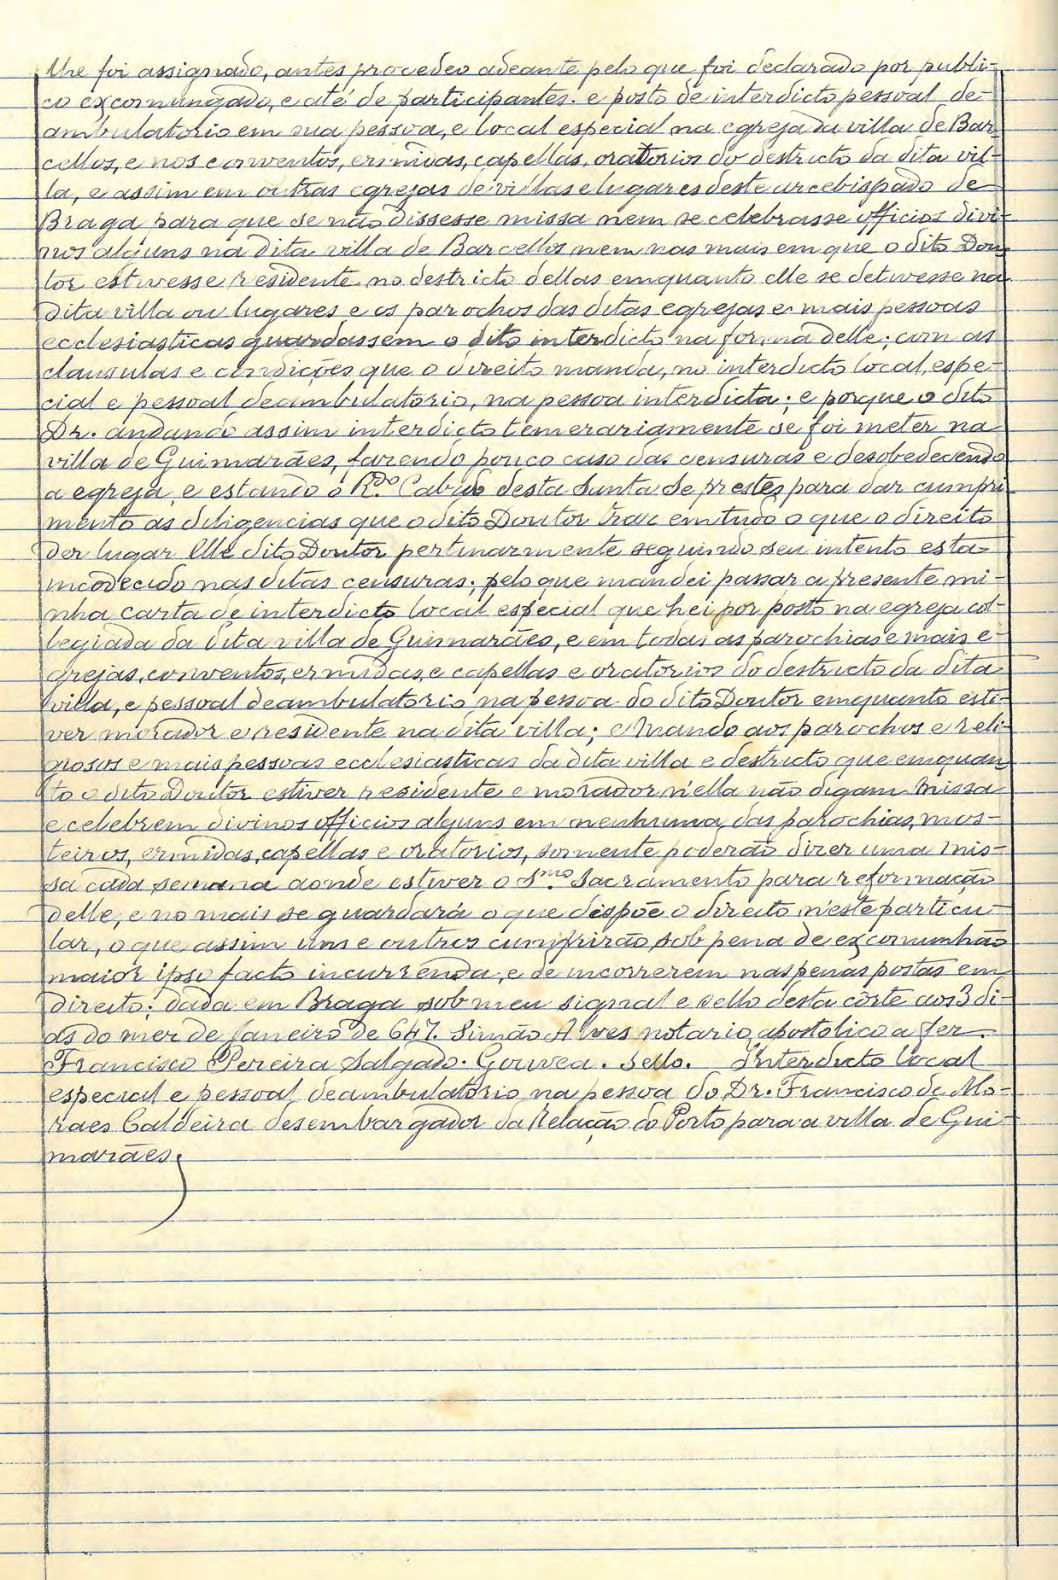 lhe foi assignado, antes procedeo adeante pelo que foi declarado por publi-
co excomungado, e até de participantes. e posto de interdicto pessoal de-
ambulatorio em sua pessoa, e local especial na egreja da villa de Bar-
cellos, e nos conventos, ermidas, capellas, oratorios do destructo da dita vil-
la, e assim em outras egrejas de villas e lugares deste arcebispado de
Braga para que se não dissesse missa nem se celebrasse officios divi-
nos alguns na dita villa de Barcellos nem nas mais em que o dito Dou-
tor estivesse residente no destricto dellas emquanto elle se detivesse na
dita villa ou lugares e os parochos das ditas egrejas e mais pessoas
ecclesiasticas guardassem o dito interdicto na forma delle; com as
clausulas e condições que o direito manda, no interdicto local, espe-
cial e pessoal deambulatorio, na pessoa interdicta; e porque o dito
Dr. andando assim interdicto temerariamente se foi meter na
villa de Guimarães, fazendo pouco caso das censuras e desobedecendo
a egreja, e estando o R.do Cabido desta Junta de prestes para dar cumpri
mento as diligencias que o dito Doutor traz em tudo o que o direito
der lugar elle dito Doutor pertinazmente seguindo seu intento está
incodecido nas ditas censuras; pelo que mandei passar a presente mi-
nha carta de interdicto local especial que hei por posto na egreja col-
legiada da dita villa de Guimarães, e em todas as parochias e mais e-
grejas, conventos, ermidas, e capellas e oratorios do destructo da dita
villa, e pessoal deambulatorio na pessoa do dito Doutor emquanto esti-
ver morador e residente na dita villa; e Mando aos parochos e reli-
giosos e mais pessoas ecclesiasticas da dita villa e destructo que emquan-
to o dito Doutor estiver residente e morador n'ella não digam missa
e celebrem divinos officios alguns em nenhuma das parochias, mos-
teiros, ermidas, capellas e oratorios, somente poderão dizer uma mis-
sa cada semana aonde estiver o S.mo Sacramento para reformação
delle, e no mais se guardará o que dispõe o direito n'este particu-
lar, o que assim uns e outros cumprirão sob pena de excomunhão
maior ipso facto incurrenda, e de incorrerem nas penas postas em
direito; dada em Braga sob meu signal e sello desta côrte aos 3 di-
as do mez de Janeiro de 647. Simão Alves notario apostolico a fez.
Francisco Pereira Salgado. Gouvea. Sello. Interdicto local
especial e pessoal deambulatorio na pessoa do Dr. Francisco de Mo-
raes Caldeira desembargador da Relação do Porto para a villa de Gui-
marães.